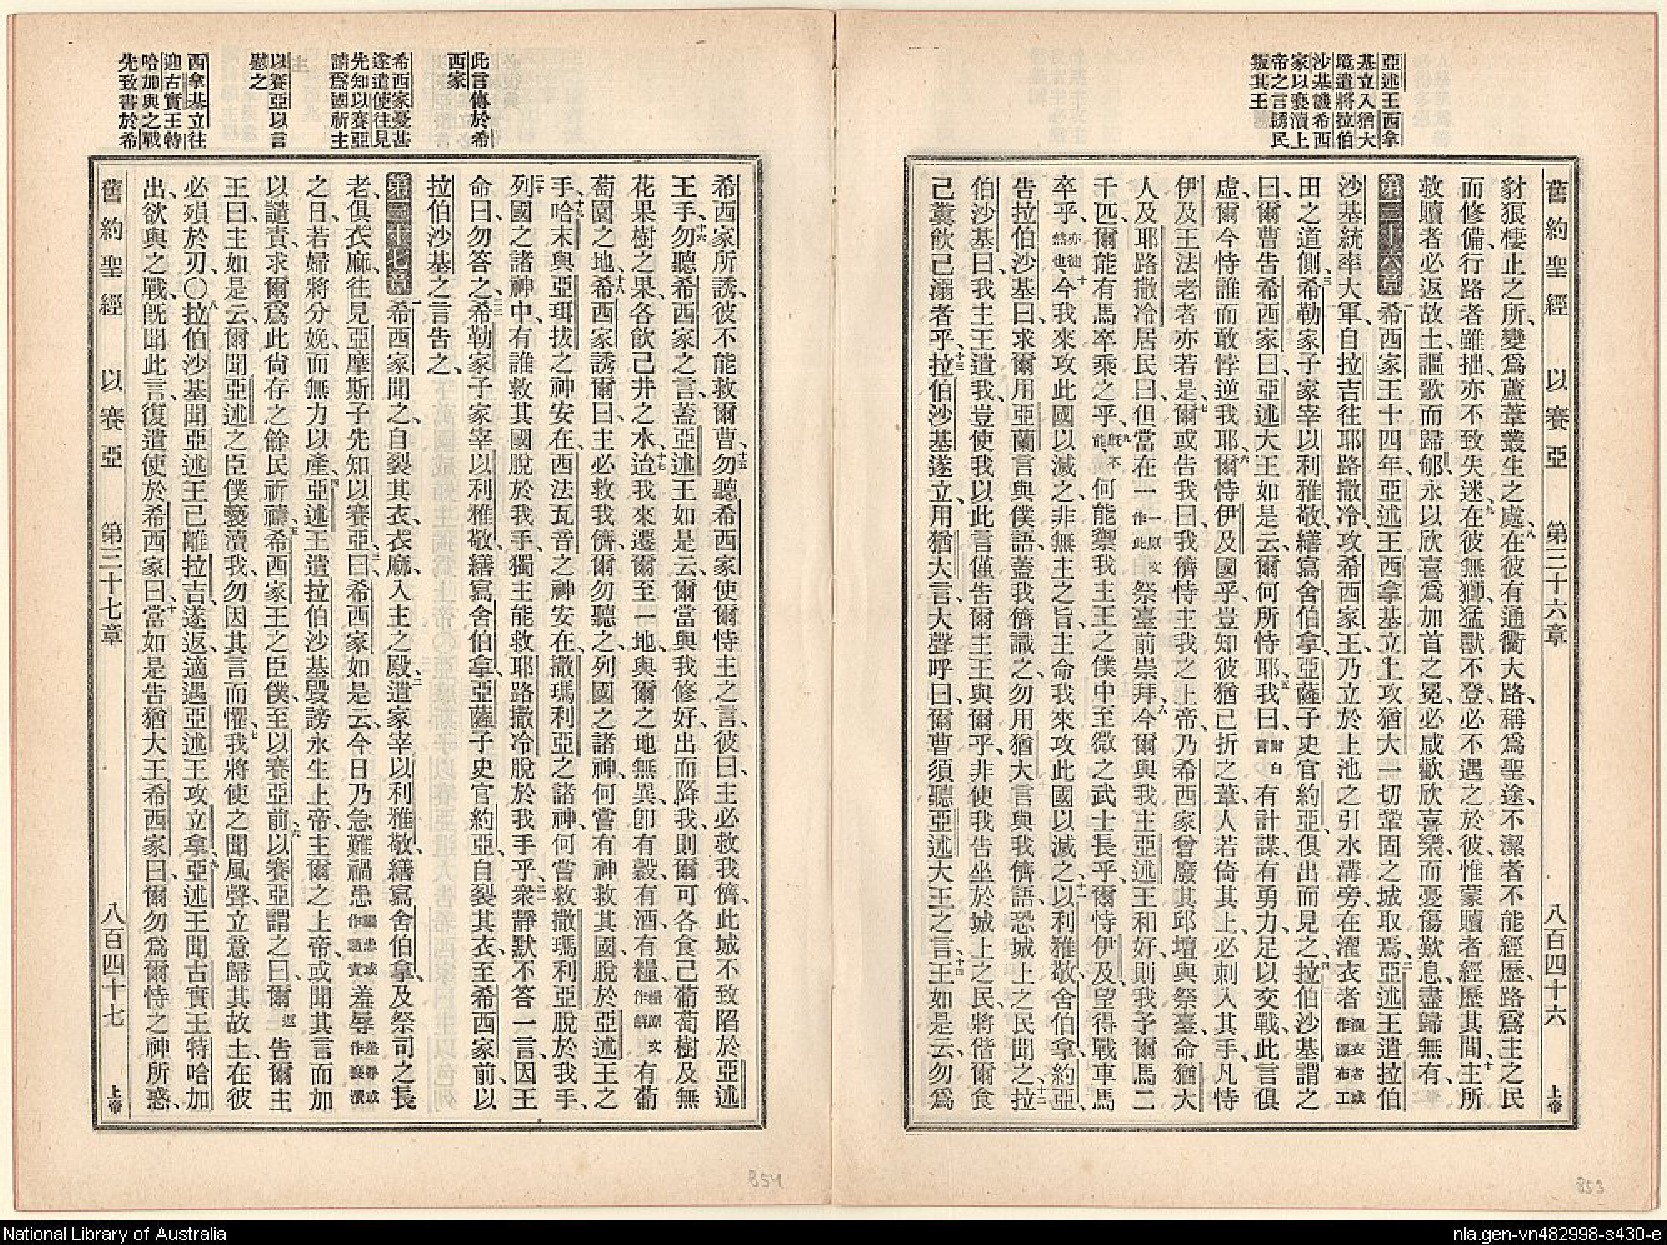 亞述王西拿
基立入猶大
境遣將拉伯
沙基譏希西
家以褻瀆上
帝之言誘民
叛其王
舊約聖經 以賽亞 第三十六章 八百四十六 上帝
豺狼棲止之所、變爲蘆葦叢生之處、八在彼有通衢大路、稱爲聖途、不潔者不能經歷、路爲主之民
而修備、行路者雖拙、亦不致失迷、九在彼無獅、猛獸不登、必不遇之於彼、惟蒙贖者經歷其間、十主所
救贖者必返故土、謳歌而歸郇、永以欣喜爲加首之冕、必咸歡欣喜樂、而憂傷歎息、盡歸無有、
第三十六章 一希西家王十四年、亞述王西拿基立上攻猶大一切鞏固之城取焉、二亞述王遣拉伯
沙基統率大軍、自拉吉往耶路撒冷、攻希西家王、乃立於上池之引水溝旁、在濯衣者濯衣者或作漂布工
田之道側、三希勒家子家宰以利雅敬、繕寫舍伯拿、亞薩子史官約亞、俱出而見之、四拉伯沙基謂之
曰、爾曹告希西家曰、亞述大王如是云、爾何所恃耶、五我曰、有計謀、有勇力、足以交戰、此言俱
虛、爾今恃誰而敢悖逆我耶、六爾恃伊及國乎、豈知彼猶已折之葦、人若倚其上、必刺入其手、凡恃
伊及王法老者亦若是、七爾或告我曰、我儕恃主我之上帝、乃希西家曾廢其邱壇與祭臺、命猶大
人及耶路撒冷居民曰、但當在一一原文作此祭臺前崇拜、八今爾與我主亞述王和好、則我予爾馬二
千匹、爾能有馬卒乘之乎、九何能禦我主王之僕中至微之武士長乎、爾恃伊及望得戰車馬
卒乎、十今我來攻此國以滅之、非無主之旨、主命我來攻此國以滅之、十一以利雅敬、舍伯拿、約亞、
告拉伯沙基曰、求爾用亞蘭言與僕語、蓋我儕識之、勿用猶大言與我儕語、恐城上之民聞之、十二拉
伯沙基曰、我主王遣我、豈使我以此言僅告爾主王與爾乎、非使我告坐於城上之民、將偕爾食
己糞飲己溺者乎、十三拉伯沙基遂立、用猶大言、大聲呼曰、爾曹須聽亞述大王之言、十四王如是云、勿爲
此言傳於希
西家
希西家憂甚
遂遣使往見
先知以賽亞
請爲國祈主
以賽亞以言
慰之
西拿基立往
迎古實王特
哈加與之戰
先致書於希
希西家所誘、彼不能救爾曹、十五勿聽希西家使爾恃主之言、彼曰、主必救我儕、此城不致陷於亞述
王手、十六勿聽希西家之言、蓋亞述王如是云、爾當與我修好、出而降我、則爾可各食己葡萄樹及無
花果樹之果、各飲己井之水、十七迨我來遷爾至一地、與爾之地無異、卽有穀有酒、有糧糧原文作餅有葡
萄園之地、十八希西家誘爾曰、主必救我儕、爾勿聽之、列國之諸神、何嘗有神救其國脫於亞述王之
手、十九哈末與亞珥拔之神安在、西法瓦音之神安在、撒瑪利亞之諸神、何嘗救撒瑪利亞脫於我手、
二十列國之諸神中、有誰救其國脫於我手、獨主能救耶路撒冷脫於我手乎、二一衆靜默不答一言、因王
命曰、勿答之、二二希勒家子家宰以利雅敬、繕寫舍伯拿、亞薩子史官約亞、自裂其衣、至希西家前、以
拉伯沙基之言告之、
第三十七章 一希西家聞之、自裂其衣、衣麻、入主之殿、二遣家宰以利雅敬、繕寫舍伯拿、及祭司之長
老、俱衣麻、往見亞摩斯子先知以賽亞、三曰、希西家如是云、今日乃急難禍患禍患或作譴責羞辱羞辱或作褻瀆
之日、若婦將分娩、而無力以產、四亞述王遣拉伯沙基毀謗永生上帝、主爾之上帝、或聞其言而加
以譴責、求爾爲此尙存之餘民祈禱、五希西家王之臣僕、至以賽亞前、六以賽亞謂之曰、爾返告爾主
王曰、主如是云、爾聞亞述之臣僕褻瀆我、勿因其言而懼、七我將使之聞風聲、立意歸其故土、在彼
必殞於刃、〇八拉伯沙基聞亞述王已離拉吉、遂返、適遇亞述王攻立拿、九亞述王聞古實王特哈加
出、欲與之戰、旣聞此言、復遣使於希西家曰、十當如是告猶大王希西家曰、爾勿爲爾恃之神所惑、
舊約聖經 以賽亞 第三十七章 八百四十七 上帝
854
853
National Library of Australia
nla.gen-vn482998-s430-e